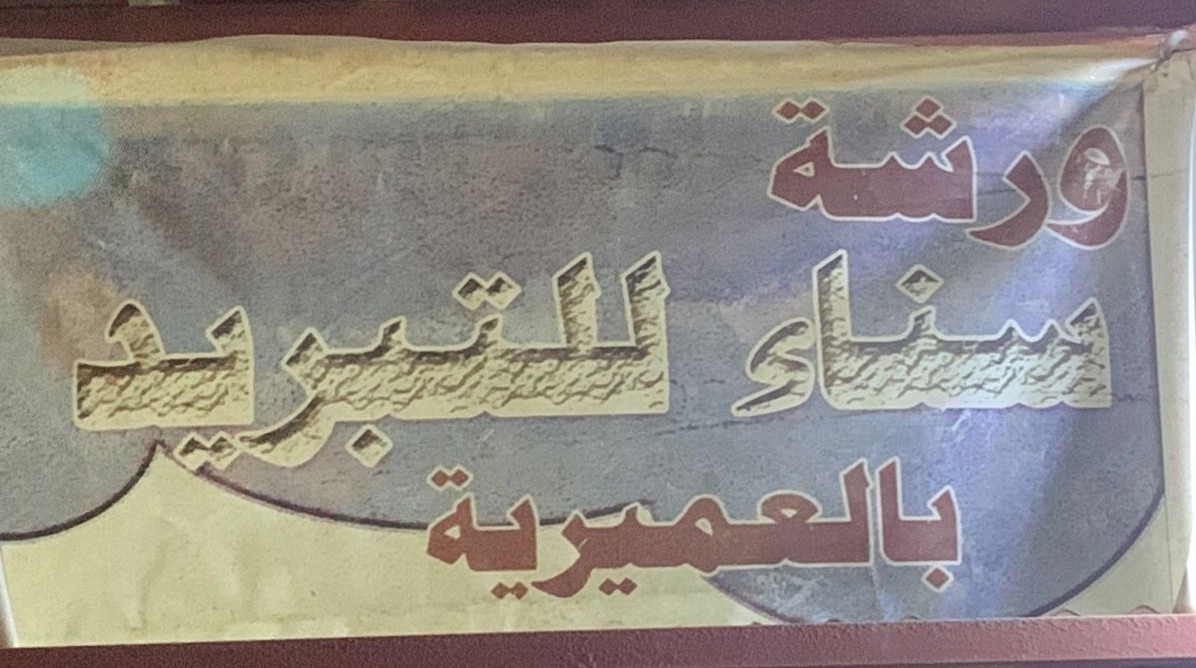 ورشة
سناء للتبريد
بالعميرية